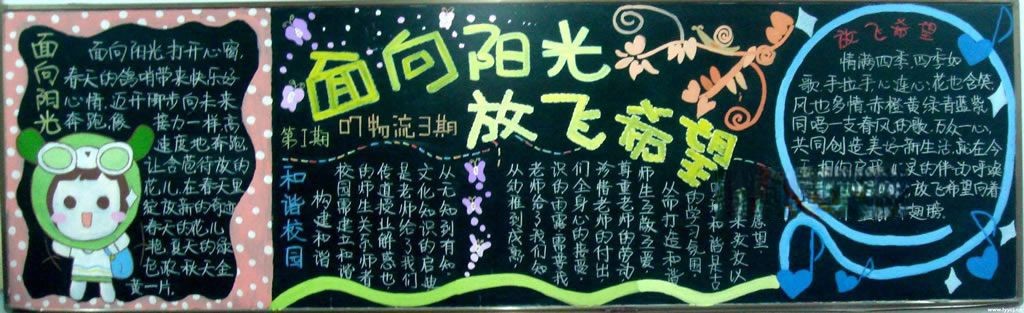 面向阳光
面向阳光打开心窗,
春天的鸽哨带来快乐好
心情.迈开脚步向未来
奔跑,像接力一样,高
速度地奔跑.
让含苞待放的
花儿,在春天里
绽放新的奇迹
春天的花儿
抱夏天的绿
色浓.秋天金
黄一片.
面向阳光
放飞希望
第1期
07物流3期
和谐校园
构建和谐
校园需建立和谐
的师生关系.师者
传道授业解惑也
是老师给了我们
文化知识的启典
从无知到有知
从幼稚到成熟
老师给了我们知
识的雨露需要我
们全身心的接受.
珍惜老师的付出
尊重老师的劳动
师生之敬之爱.
从而打造和谐
的学习氛围.
放飞希望
情满四季,四季如
歌,手拉手,心连心,花也含笑,
风也多情.赤橙黄绿青蓝紫.
同唱一支春风的歌.万众一心,
共同创造美好新生活,就在今
放飞希望向着
翅膀.
www.lyyczj.cn